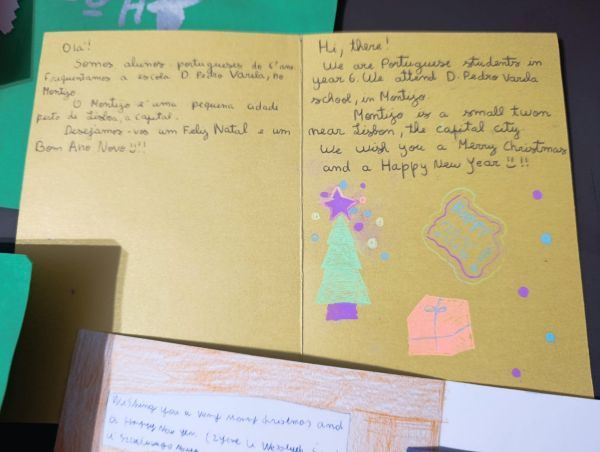 Olá!!
Somos alunos portugueses do 6º ano.
Frequentamos a escola D. Pedro Varela, no
Montijo.
O Montijo é uma pequena cidade
perto de Lisboa, a capital.
Desejamos-vos um Feliz Natal e um
Bom Ano Novo!!!
Hi, there!
We are Portuguese students in
year 6. We attend D. Pedro Varela
school, in Montijo.
Montijo is a small twon
near Lisbon, the capital city.
We wish you a Merry Christmas
and a Happy New Year!!!
Happy
Wishing you a very merry christmas and
a Happy New Year.